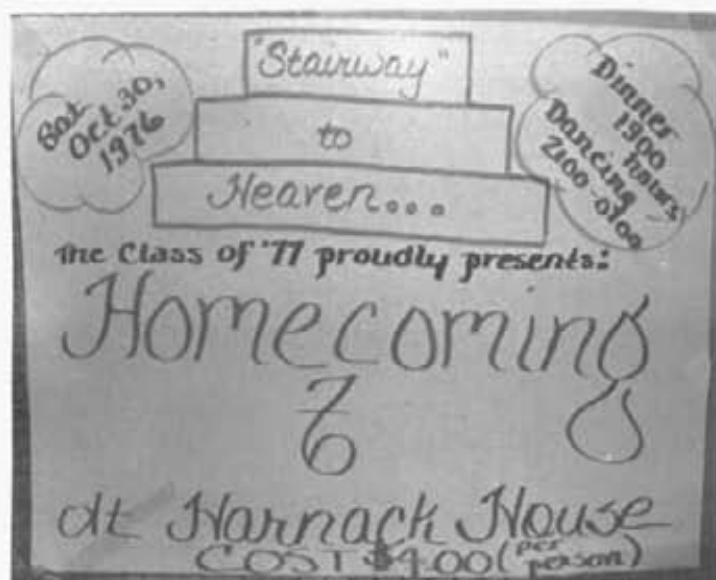 "Stairway"
to
Heaven...
Sat
Oct. 30,
1976
Dinner
1900
hours
Dancing
2100-0100
The Class of '77 proudly presents:
Homecoming
76
at Harnack House
COST $4.00 (per person)